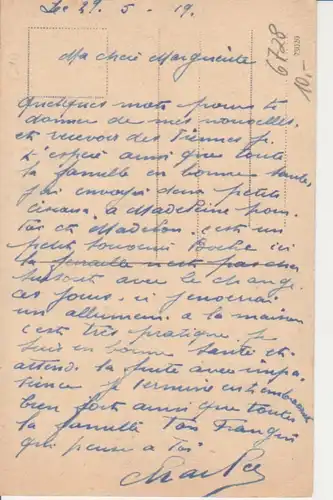 Le 29. 5 - 19.
6728
10.-
75029
Ma chère Marguerite
Quelques mots pour te
donner de mes nouvelles
et recevoir des tiennes je
t'espère ainsi que toute
la famille en bonne santé
j'ai envoyé deux petits
ciseaux a Madeleine pour
toi et Madelon. c'est un
petit souvenir Boche ici
la feraille n'est pas cher
surtout avec le change
ces jours. ci j'enverrai
un allumeur a la maison
c'est très pratique. je
suis en bonne santé et
attend. la suite avec impa-
sience je termine en t'embrassant
bien fort ainsi que toute
la famille Ton Frangin
qui pense a toi